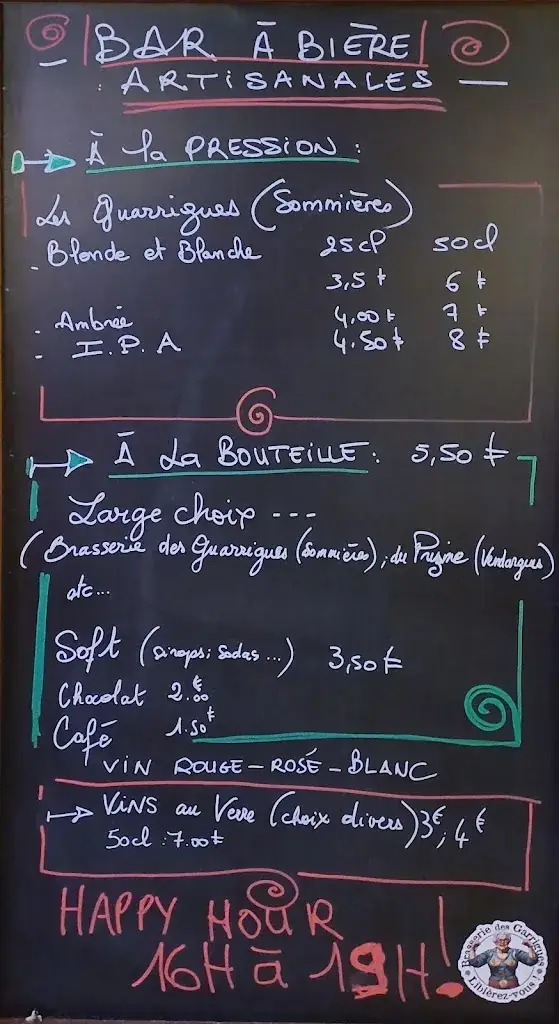 BAR À BIÈRE
ARTISANALES
À la PRESSION :
Les Guarrigues (Sommières)
- Blonde et Blanche 25cl 50cl
3,5 € 6 €
- Ambrée 4,00 € 7 €
- I.P.A 4.50 € 8 €
À La BOUTEILLE : 5,50 €
Large choix ---
(Brasserie des Guarrigues (Sommières), du Prisme (Vendargues)
etc...
Soft (sirops; Sodas ...) 3,50 €
Chocolat 2.00 €
Café 1.50 €
VIN ROUGE - ROSÉ - BLANC
VINS au Verre (choix divers) 3€, 4€
50cl : 7.00 €
HAPPY HOUR
16H à 19H !
Brasserie des Garrigues
• Libièrez-vous ! •